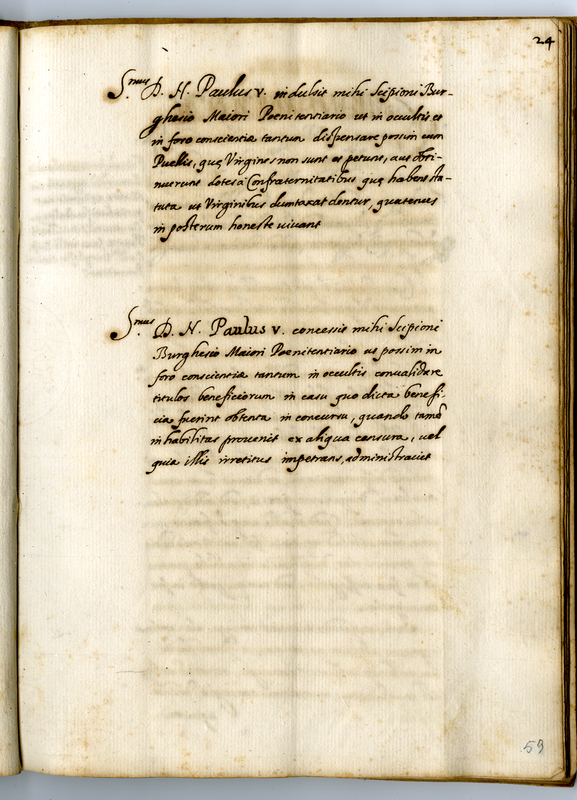 24
S.mus D. N. Paulus V. indulsit mihi Scipioni Bur-
ghesio Maiori Poenitentiario ut in occultis et
in foro conscientiæ tantum dispensare possim cum
Puellis, quę Virgines non sunt et petunt, aut obti-
nuerunt dotes à Confraternitatibus quę habent sta-
tuta ut Virginibus duntaxat dentur, quatenus
in posterum honeste vivant
S.mus D. N. Paulus V. concessit mihi Scipioni
Burghesio Maiori Poenitentiario ut possim in
foro conscientiæ tantum in occultis convalidare
titulos beneficiorum in casu quo dicta benefi-
cia fuerint obtenta in concursu, quando tamẽ
inhabilitas provenit ex aliqua censura, vel
quia illis irretitus impetrans, administravit
59